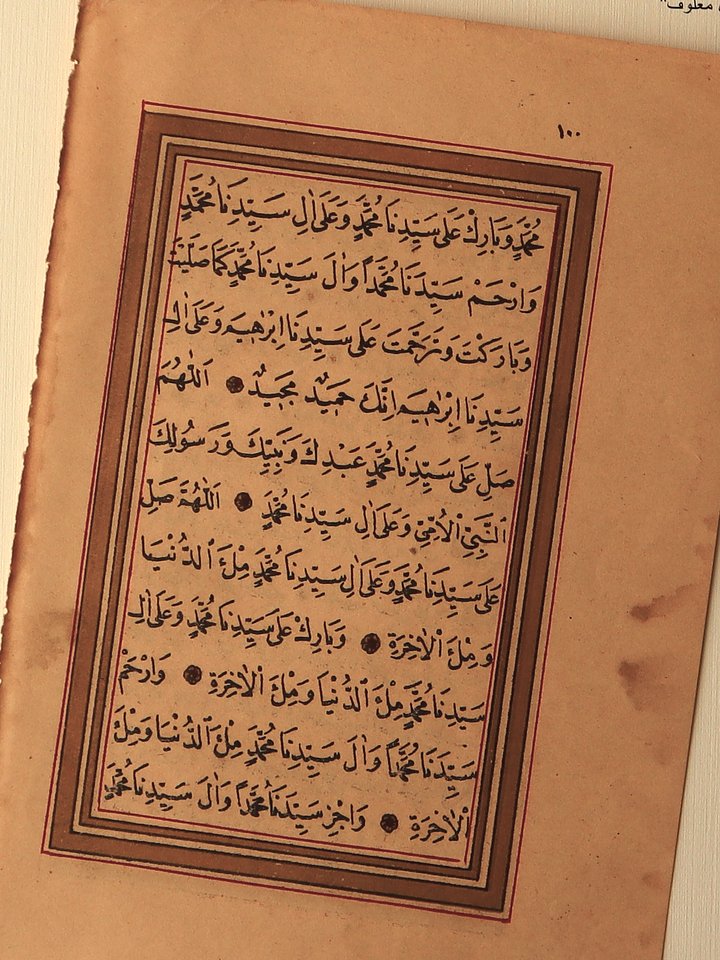 معلوف"
١٠٠
مُحَمَّدٍ وَبَارِكْ عَلٰى سَيِّدِنَا مُحَمَّدٍ وَعَلٰى اٰلِ سَيِّدِنَا مُحَمَّدٍ
وَارْحَمْ سَيِّدَنَا مُحَمَّدًا وَاٰلَ سَيِّدِنَا مُحَمَّدٍ كَمَا صَلَّيْتَ
وَبَارَكْتَ وَتَرَحَّمْتَ عَلٰى سَيِّدِنَا اِبْرٰهِيمَ وَعَلٰى اٰلِ
سَيِّدِنَا اِبْرٰهِيمَ اِنَّكَ حَمِيدٌ مَجِيدٌ ● اَللّٰهُمَّ
صَلِّ عَلٰى سَيِّدِنَا مُحَمَّدٍ عَبْدِكَ وَنَبِيِّكَ وَرَسُولِكَ
النَّبِيِّ الْاُمِّيِّ وَعَلٰى اٰلِ سَيِّدِنَا مُحَمَّدٍ ● اَللّٰهُمَّ صَلِّ
عَلٰى سَيِّدِنَا مُحَمَّدٍ وَعَلٰى اٰلِ سَيِّدِنَا مُحَمَّدٍ مِلْءَ الدُّنْيَا
وَمِلْءَ الْاٰخِرَةِ ● وَبَارِكْ عَلٰى سَيِّدِنَا مُحَمَّدٍ وَعَلٰى اٰلِ
سَيِّدِنَا مُحَمَّدٍ مِلْءَ الدُّنْيَا وَمِلْءَ الْاٰخِرَةِ ● وَارْحَمْ
سَيِّدَنَا مُحَمَّدًا وَاٰلَ سَيِّدِنَا مُحَمَّدٍ مِلْءَ الدُّنْيَا وَمِلْءَ
الْاٰخِرَةِ ● وَاجْزِ سَيِّدَنَا مُحَمَّدًا وَاٰلَ سَيِّدِنَا مُحَمَّدٍ